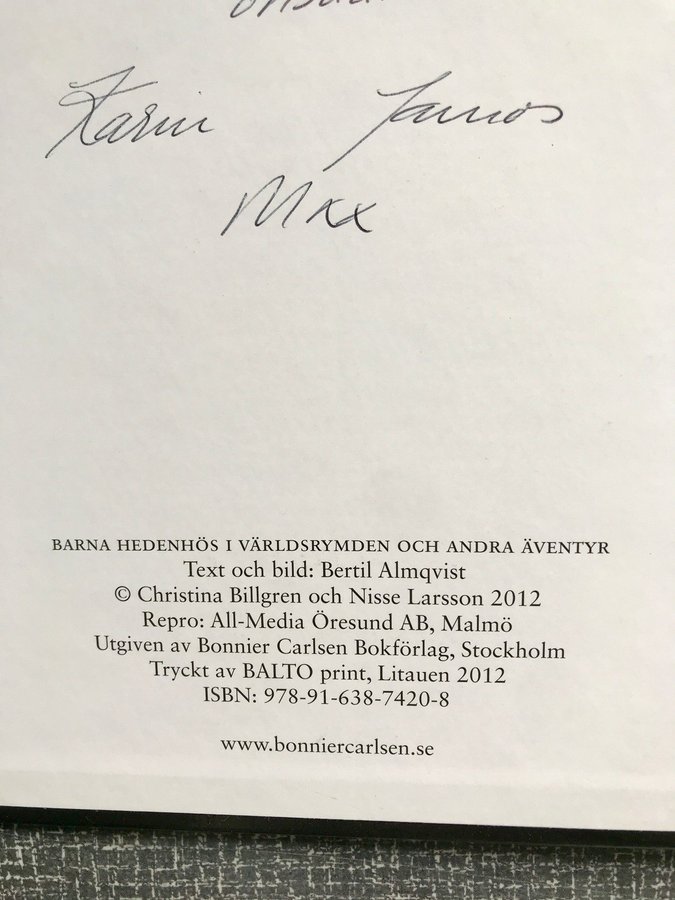 Karin Janos
Max
BARNA HEDENHÖS I VÄRLDSRYMDEN OCH ANDRA ÄVENTYR
Text och bild: Bertil Almqvist
© Christina Billgren och Nisse Larsson 2012
Repro: All-Media Öresund AB, Malmö
Utgiven av Bonnier Carlsen Bokförlag, Stockholm
Tryckt av BALTO print, Litauen 2012
ISBN: 978-91-638-7420-8
www.bonniercarlsen.se